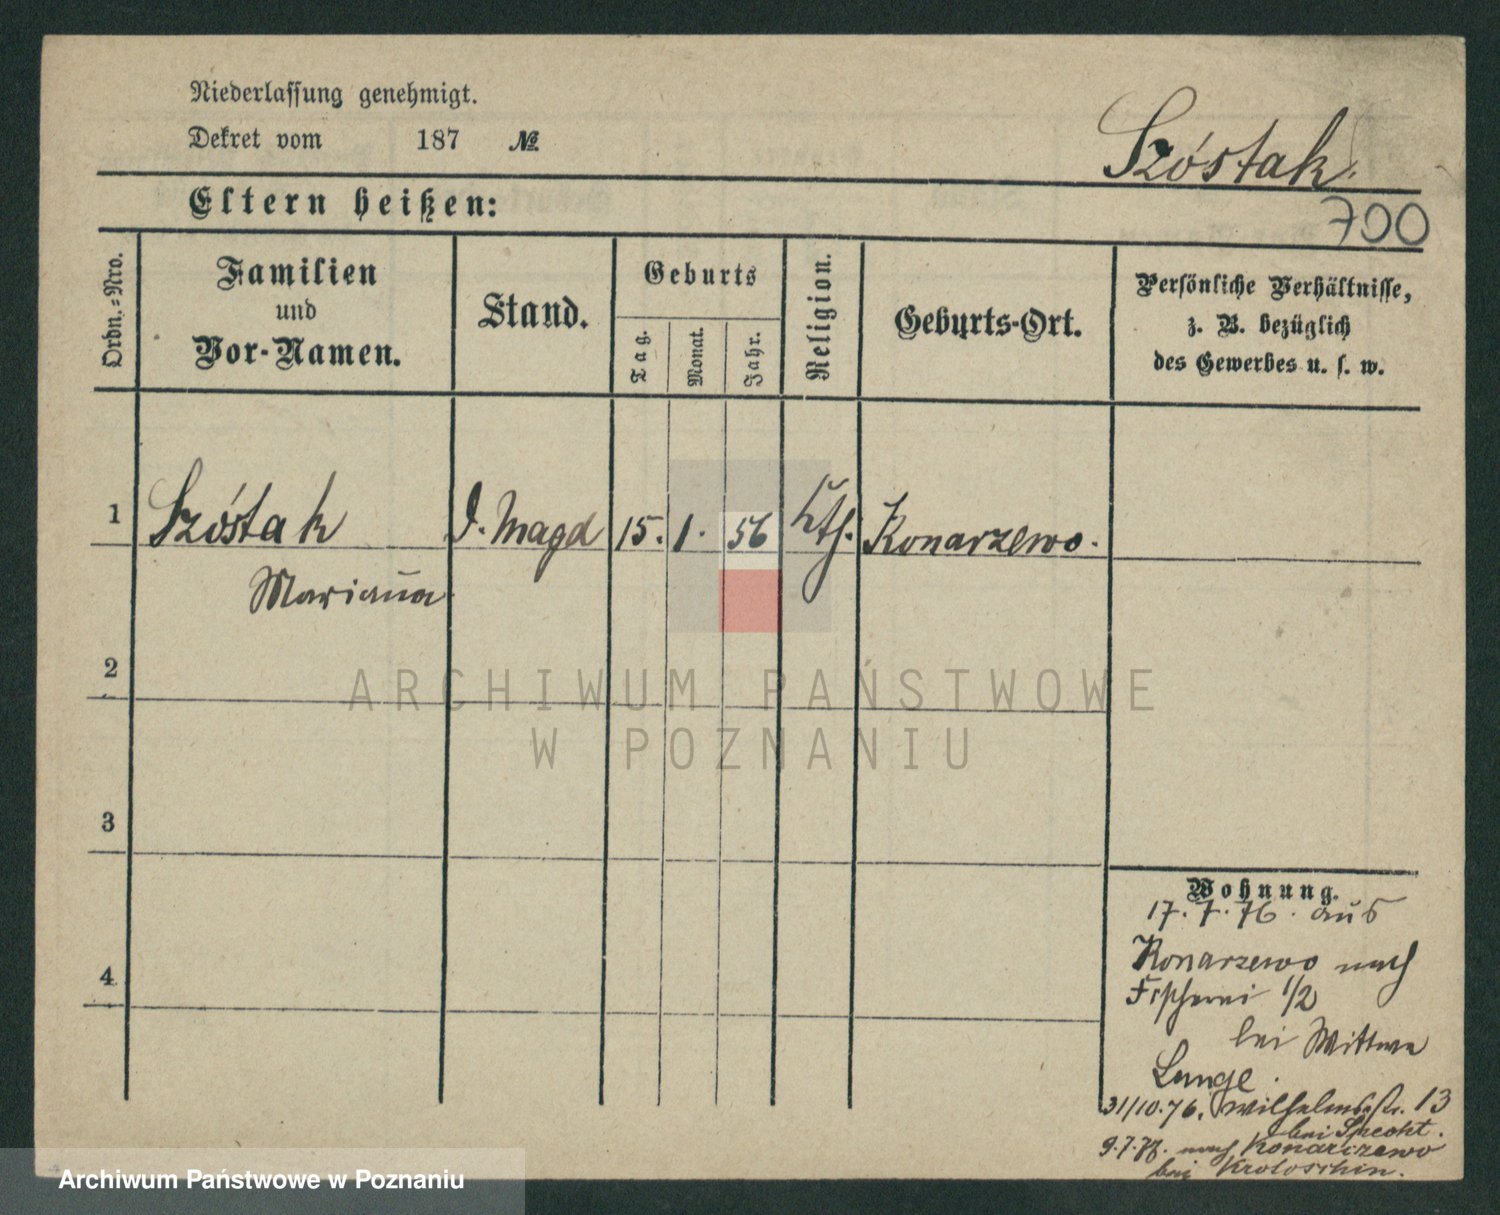 Niederlassung genehmigt.
Dekret vom 187 №
Szóstak.
700
Eltern heißen:
Ordn.=Nro.
Familien
und
Vor-Namen.
Stand.
Geburts
Tag.
Monat.
Jahr.
Religion.
Geburts-Ort.
Persönliche Verhältnisse,
z. B. bezüglich
des Gewerbes u. s. w.
1 Szóstak d. Magd 15. 1. 56 kth. Konarzewo.
Marianna
2
ARCHIWUM PAŃSTWOWE
W POZNANIU
3
Wohnung.
17.7.76. aus
Konarzewo nach
4
Fischerei 1/2
bei Wittwe
Lange.
31/10.76. Wilhelmsstr. 13
bei Specht.
9.7.77. nach Konarzewo
bei Krotoschin.
Archiwum Państwowe w Poznaniu